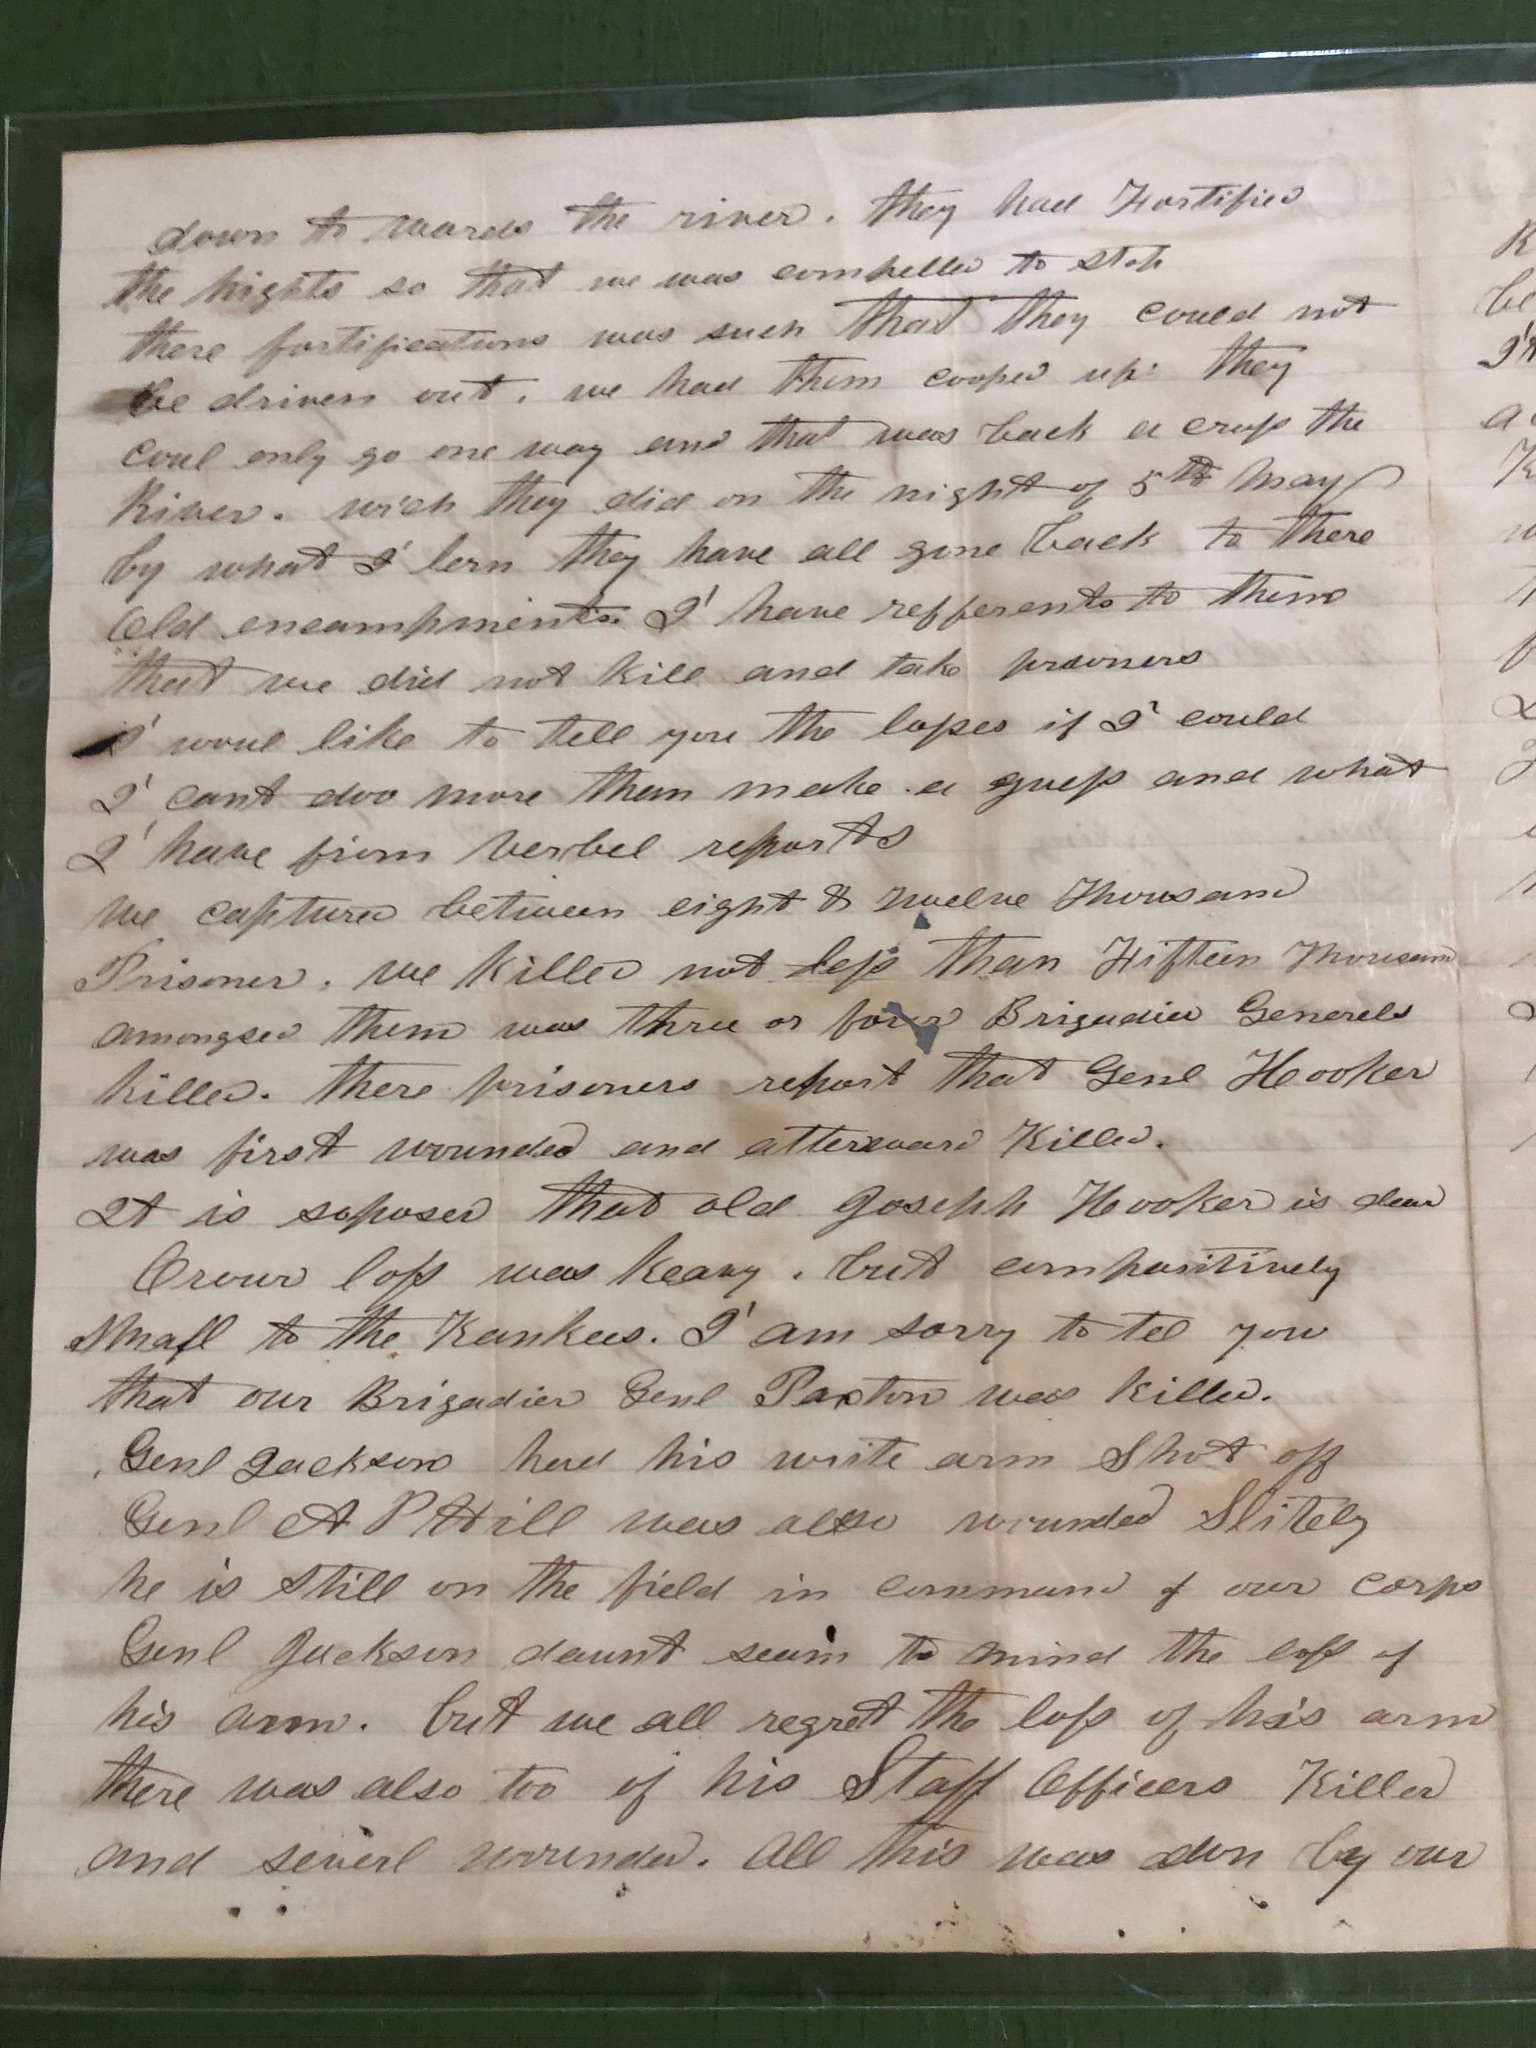 down to wards the river. they had Fortified
the hights so that we was compelled to stop
there fortifications was such that they could not
be driven out. we had them cooped up. they
coul only go one way and that was back a cross the
River. wich they did on the night of 5th May
by what I lern they have all gone back to there
Old encampments. I have refferents to them
that we did not kill and take prisoners
I woul like to tell you the losses if I could
I cant doo more than make a guess and what
I have from verbel reports
we captured between eight & twelve Thousand
Prisoner. we killed not less than Fifteen Thousand
amongsed them was three or four Brigadier Generels
killed. there prisoners report that Genl Hooker
was first wounded and atterward Killed.
It is soposed that old Joseph Hooker is dead
Orour loss was heavy. but compairitively
Small to the Yankees. I am sorry to tel you
that our Brigadier Genl Paxton was killed.
Genl Jackson had his write arm Shot off
Genl A P Hill was also wounded Slitely
he is still on the field in command of our corps
Genl Jackson daunt seam to mind the loss of
his arm. but we all regret the loss of his arm
there was also too of his Staff Officers Killed
and severl wounded. All this was don by our
R
be
I
a
K